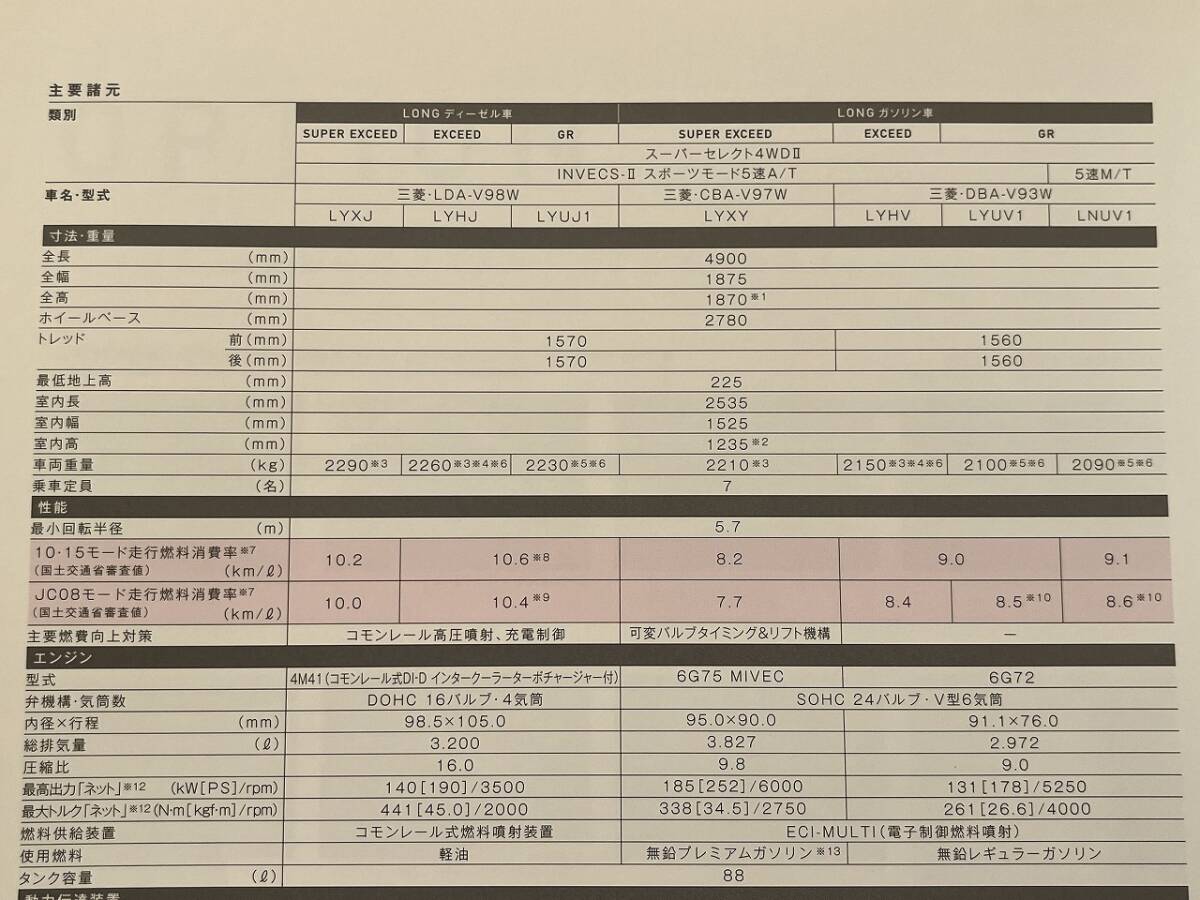 主要諸元
類別 LONG ディーゼル車 LONG ガソリン車
SUPER EXCEED EXCEED GR SUPER EXCEED EXCEED GR
スーパーセレクト4WDⅡ
INVECS-Ⅱ スポーツモード5速A/T 5速M/T
車名・型式 三菱・LDA-V98W 三菱・CBA-V97W 三菱・DBA-V93W
LYXJ LYHJ LYUJ1 LYXY LYHV LYUV1 LNUV1
寸法・重量
全長 (mm) 4900
全幅 (mm) 1875
全高 (mm) 1870※1
ホイールベース (mm) 2780
トレッド 前(mm) 1570 1560
後(mm) 1570 1560
最低地上高 (mm) 225
室内長 (mm) 2535
室内幅 (mm) 1525
室内高 (mm) 1235※2
車両重量 (kg) 2290※3 2260※3※4※6 2230※5※6 2210※3 2150※3※4※6 2100※5※6 2090※5※6
乗車定員 (名) 7
性能
最小回転半径 (m) 5.7
10・15モード走行燃料消費率※7 10.2 10.6※8 8.2 9.0 9.1
(国土交通省審査値) (km/ℓ)
JC08モード走行燃料消費率※7 10.0 10.4※9 7.7 8.4 8.5※10 8.6※10
(国土交通省審査値) (km/ℓ)
主要燃費向上対策 コモンレール高圧噴射、充電制御 可変バルブタイミング&リフト機構 —
エンジン
型式 4M41(コモンレール式DI-D インタークーラーターボチャージャー付) 6G75 MIVEC 6G72
弁機構・気筒数 DOHC 16バルブ・4気筒 SOHC 24バルブ・V型6気筒
内径×行程 (mm) 98.5×105.0 95.0×90.0 91.1×76.0
総排気量 (ℓ) 3.200 3.827 2.972
圧縮比 16.0 9.8 9.0
最高出力「ネット」※12 (kW[PS]/rpm) 140[190]/3500 185[252]/6000 131[178]/5250
最大トルク「ネット」※12(N·m[kgf·m]/rpm) 441[45.0]/2000 338[34.5]/2750 261[26.6]/4000
燃料供給装置 コモンレール式燃料噴射装置 ECI-MULTI(電子制御燃料噴射)
使用燃料 軽油 無鉛プレミアムガソリン※13 無鉛レギュラーガソリン
タンク容量 (ℓ) 88
動力伝達装置